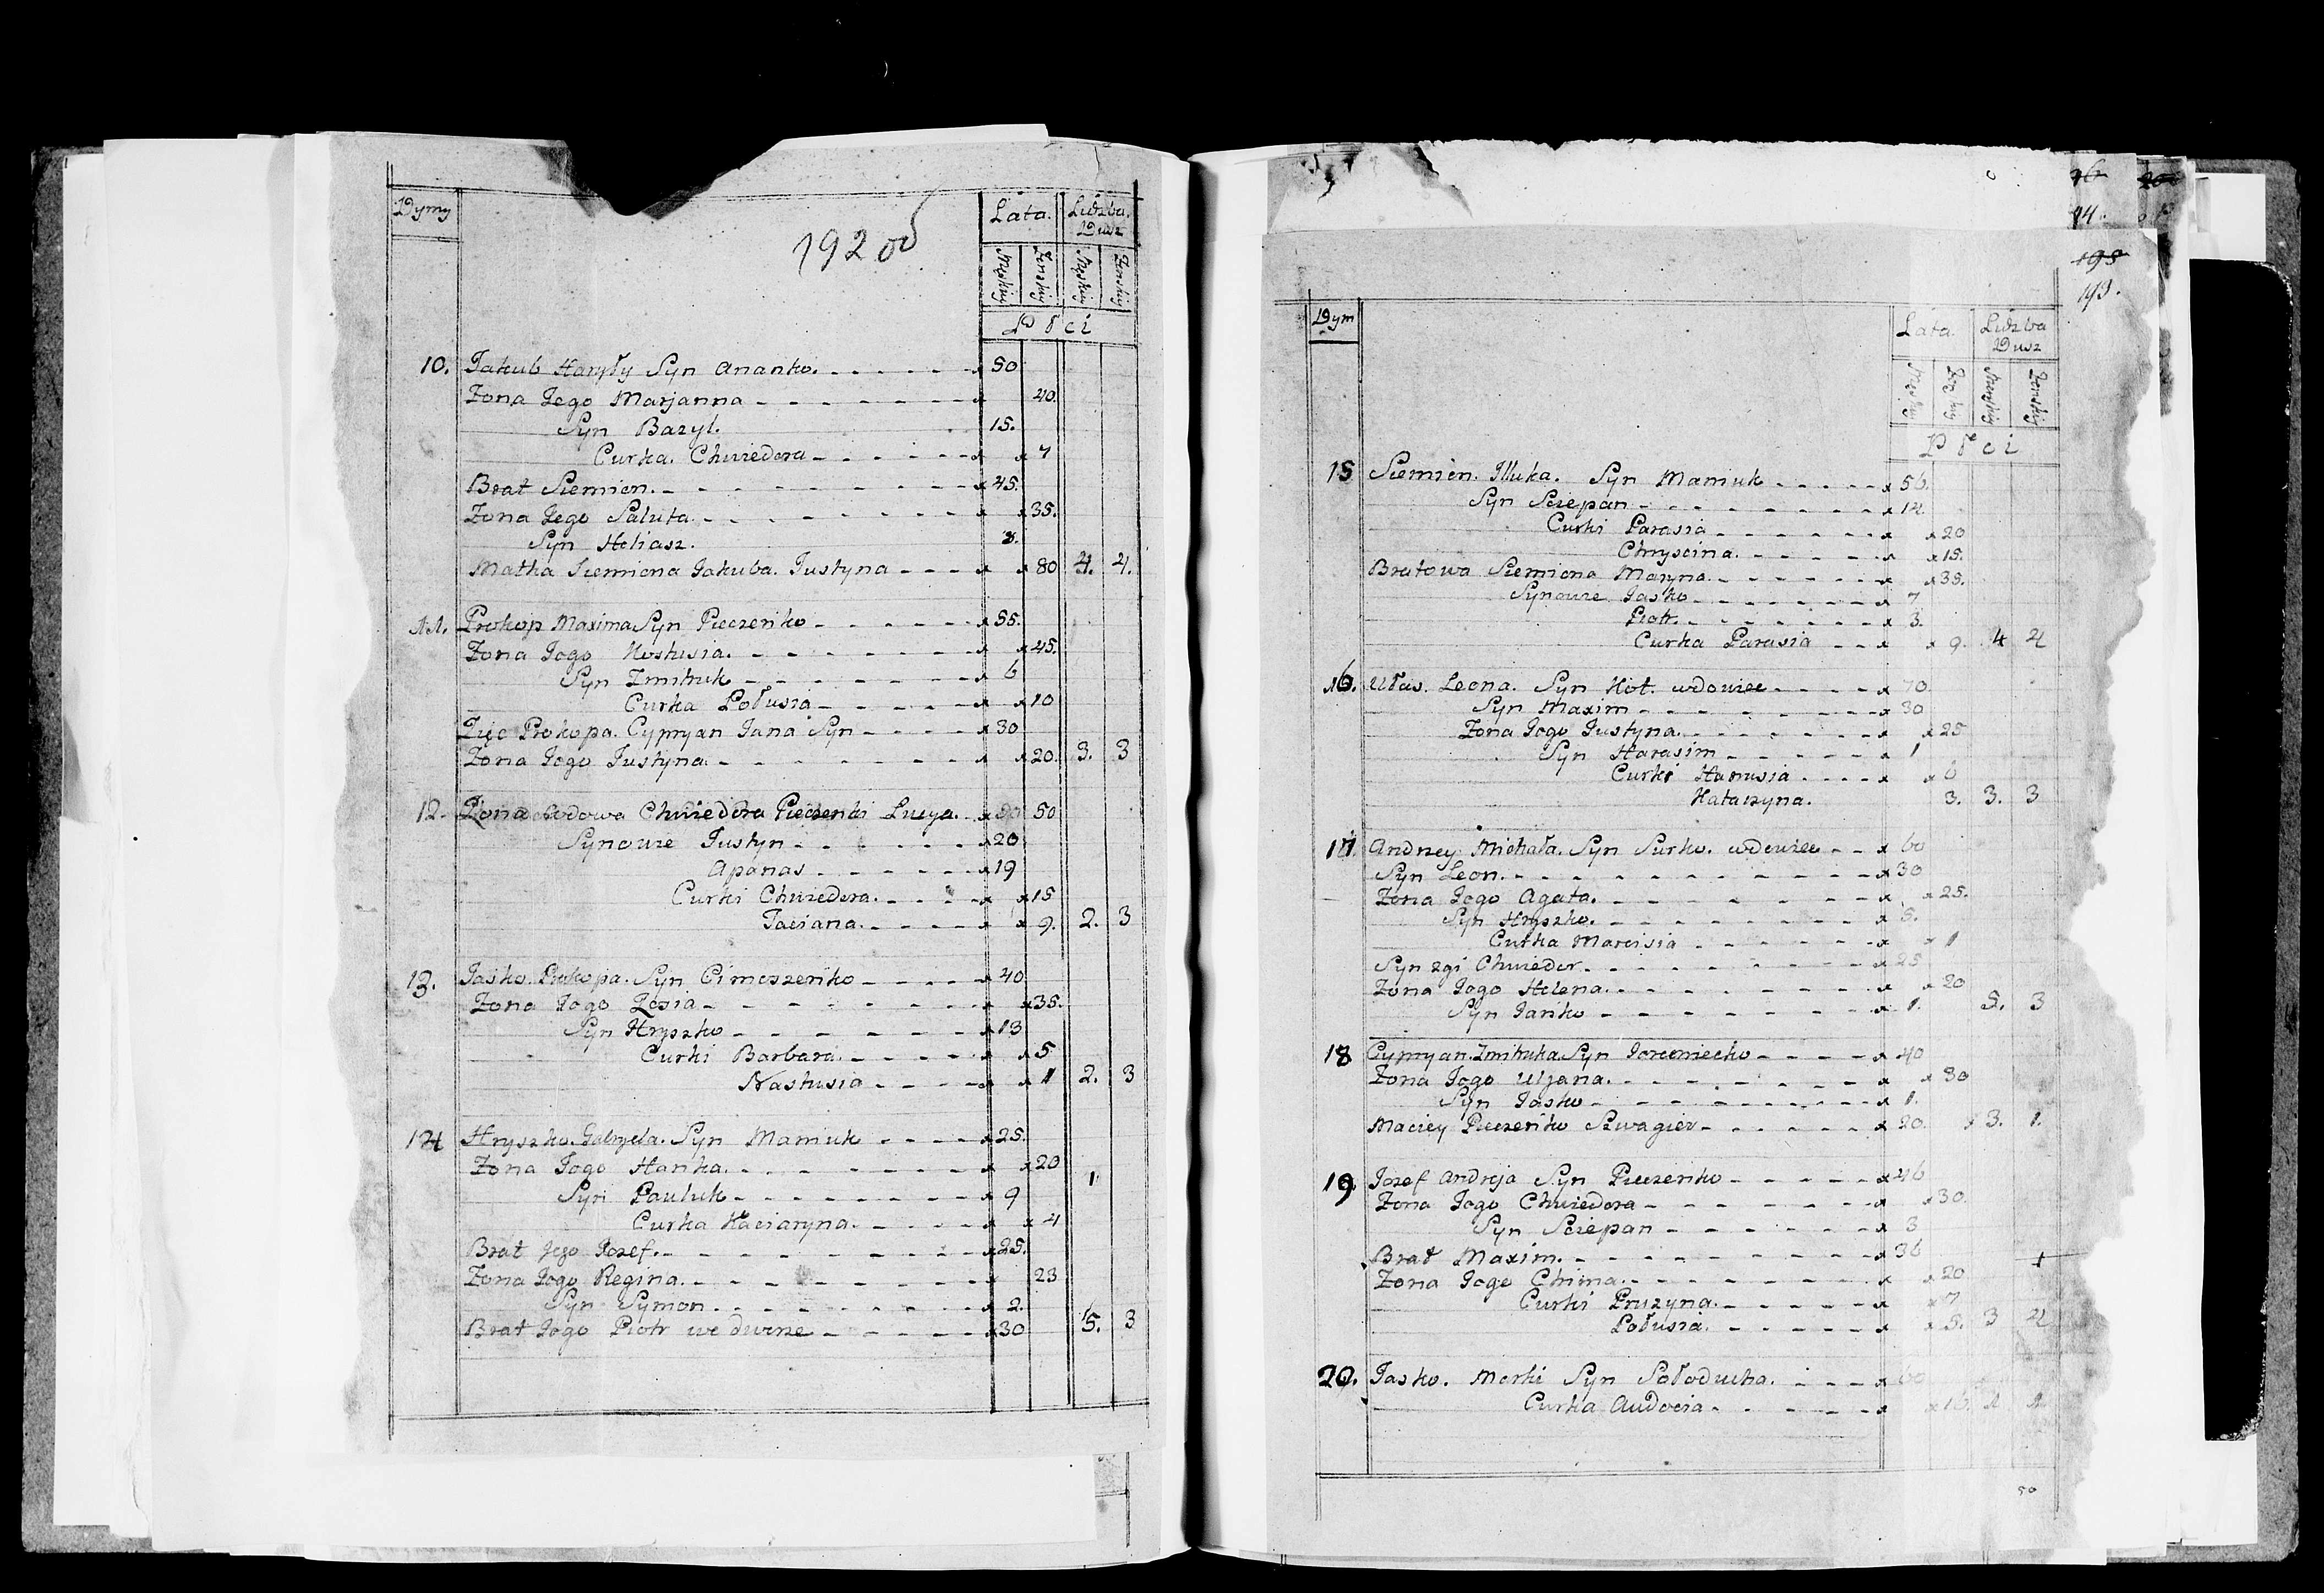 192 об
Dymy
Lata. Liczba Dusz
Męskiey Żenskiey Męskiey Żenskiey
Płci
10. Jakub Haryły Syn Ananko. 50
Żona Jego Marjanna 40.
Syn Bazyl. 15.
Curka. Chwiedora 7
Brat Siemion. 45.
Żona Jego Saluta. 35.
Syn Heliasz. 3.
Matka Siemiona Jakuba. Justyna 80 4. 4.
11. Prokop Maxima Syn Pieczeńko 55.
Żona Jogo Nastusia. 45.
Syn Zmitruk 6
Curka Połusia 10
Zięc Prokopa. Cypryan Jana Syn 30
Żona Jogo Justyna. 20. 3. 3
12. Żona wdowa Chwiedora Pieczenki Lucya. 50
Synowie Justyn 20
Apanas 19
Curki Chwiedora. 15
Taciana. 9. 2. 3
13. Jasko. Prokopa. Syn Cimoszeńko 40
Żona Jogo Zosia 35.
Syn Hryszko 13
Curki Barbara. 5
Nastusia 1 2. 3
14 Hryszko. Gabryela. Syn Maniuk 25.
Żona Jogo Hanka. 20
1
Syn Pauluk 9
Curka Kaciaryna. 4
Brat Jego Jozef. 25.
Żona Jogo Regina. 23
Syn Symon. 2.
Brat Jogo Piotr we dworze 30 5. 3
14.
195
193.
Dym
Lata. Liczba Dusz
Męskiey Żenskiey Męskiey Żenskiey
Płci
15 Siemion. Illuka. Syn Maniuk 56.
Syn Sciepan 14.
Curki Parasia 20
Chryscina. 15.
Bratowa Siemiona Maryna. 35.
Synowie Jasko 7
Piotr. 3.
Curka Parasia 9. 4 4
16. Ułas. Leona. Syn Kot. wdowiec 70.
Syn Maxim 30
Żona Jogo Justyna. 25
Syn Harasim 1
Curki Hanusia 6
Katarzyna. 3. 3. 3
17. Andrzey Michała. Syn Surko. wdowiec 60
Syn Leon. 30
Żona Jogo Agata. 25.
Syn Hryszko. 5.
Curka Marcisia 1
Syn 2gi Chwiedor. 25
Żona Jogo Helena. 20
Syn Jańko 1. 5. 3
18 Cypryan. Zmitruka Syn 40
Żona Jogo Uljana. 30
Syn Jasko 1.
Maciey Pieczeńko Szwagier 20. 3. 1.
19. Jozef Andreja Syn Pieczeńko 46
Żona Jogo Chwiedora 30.
Syn Sciepan 3
Brat Maxim. 36
Żona Jogo Chima. 20
Curki Pruzyna. 7
Połusia. 5. 3 4
20. Jasko. Marki Syn Sołoducha. 60
Curka Audocia 16. 1 1
50